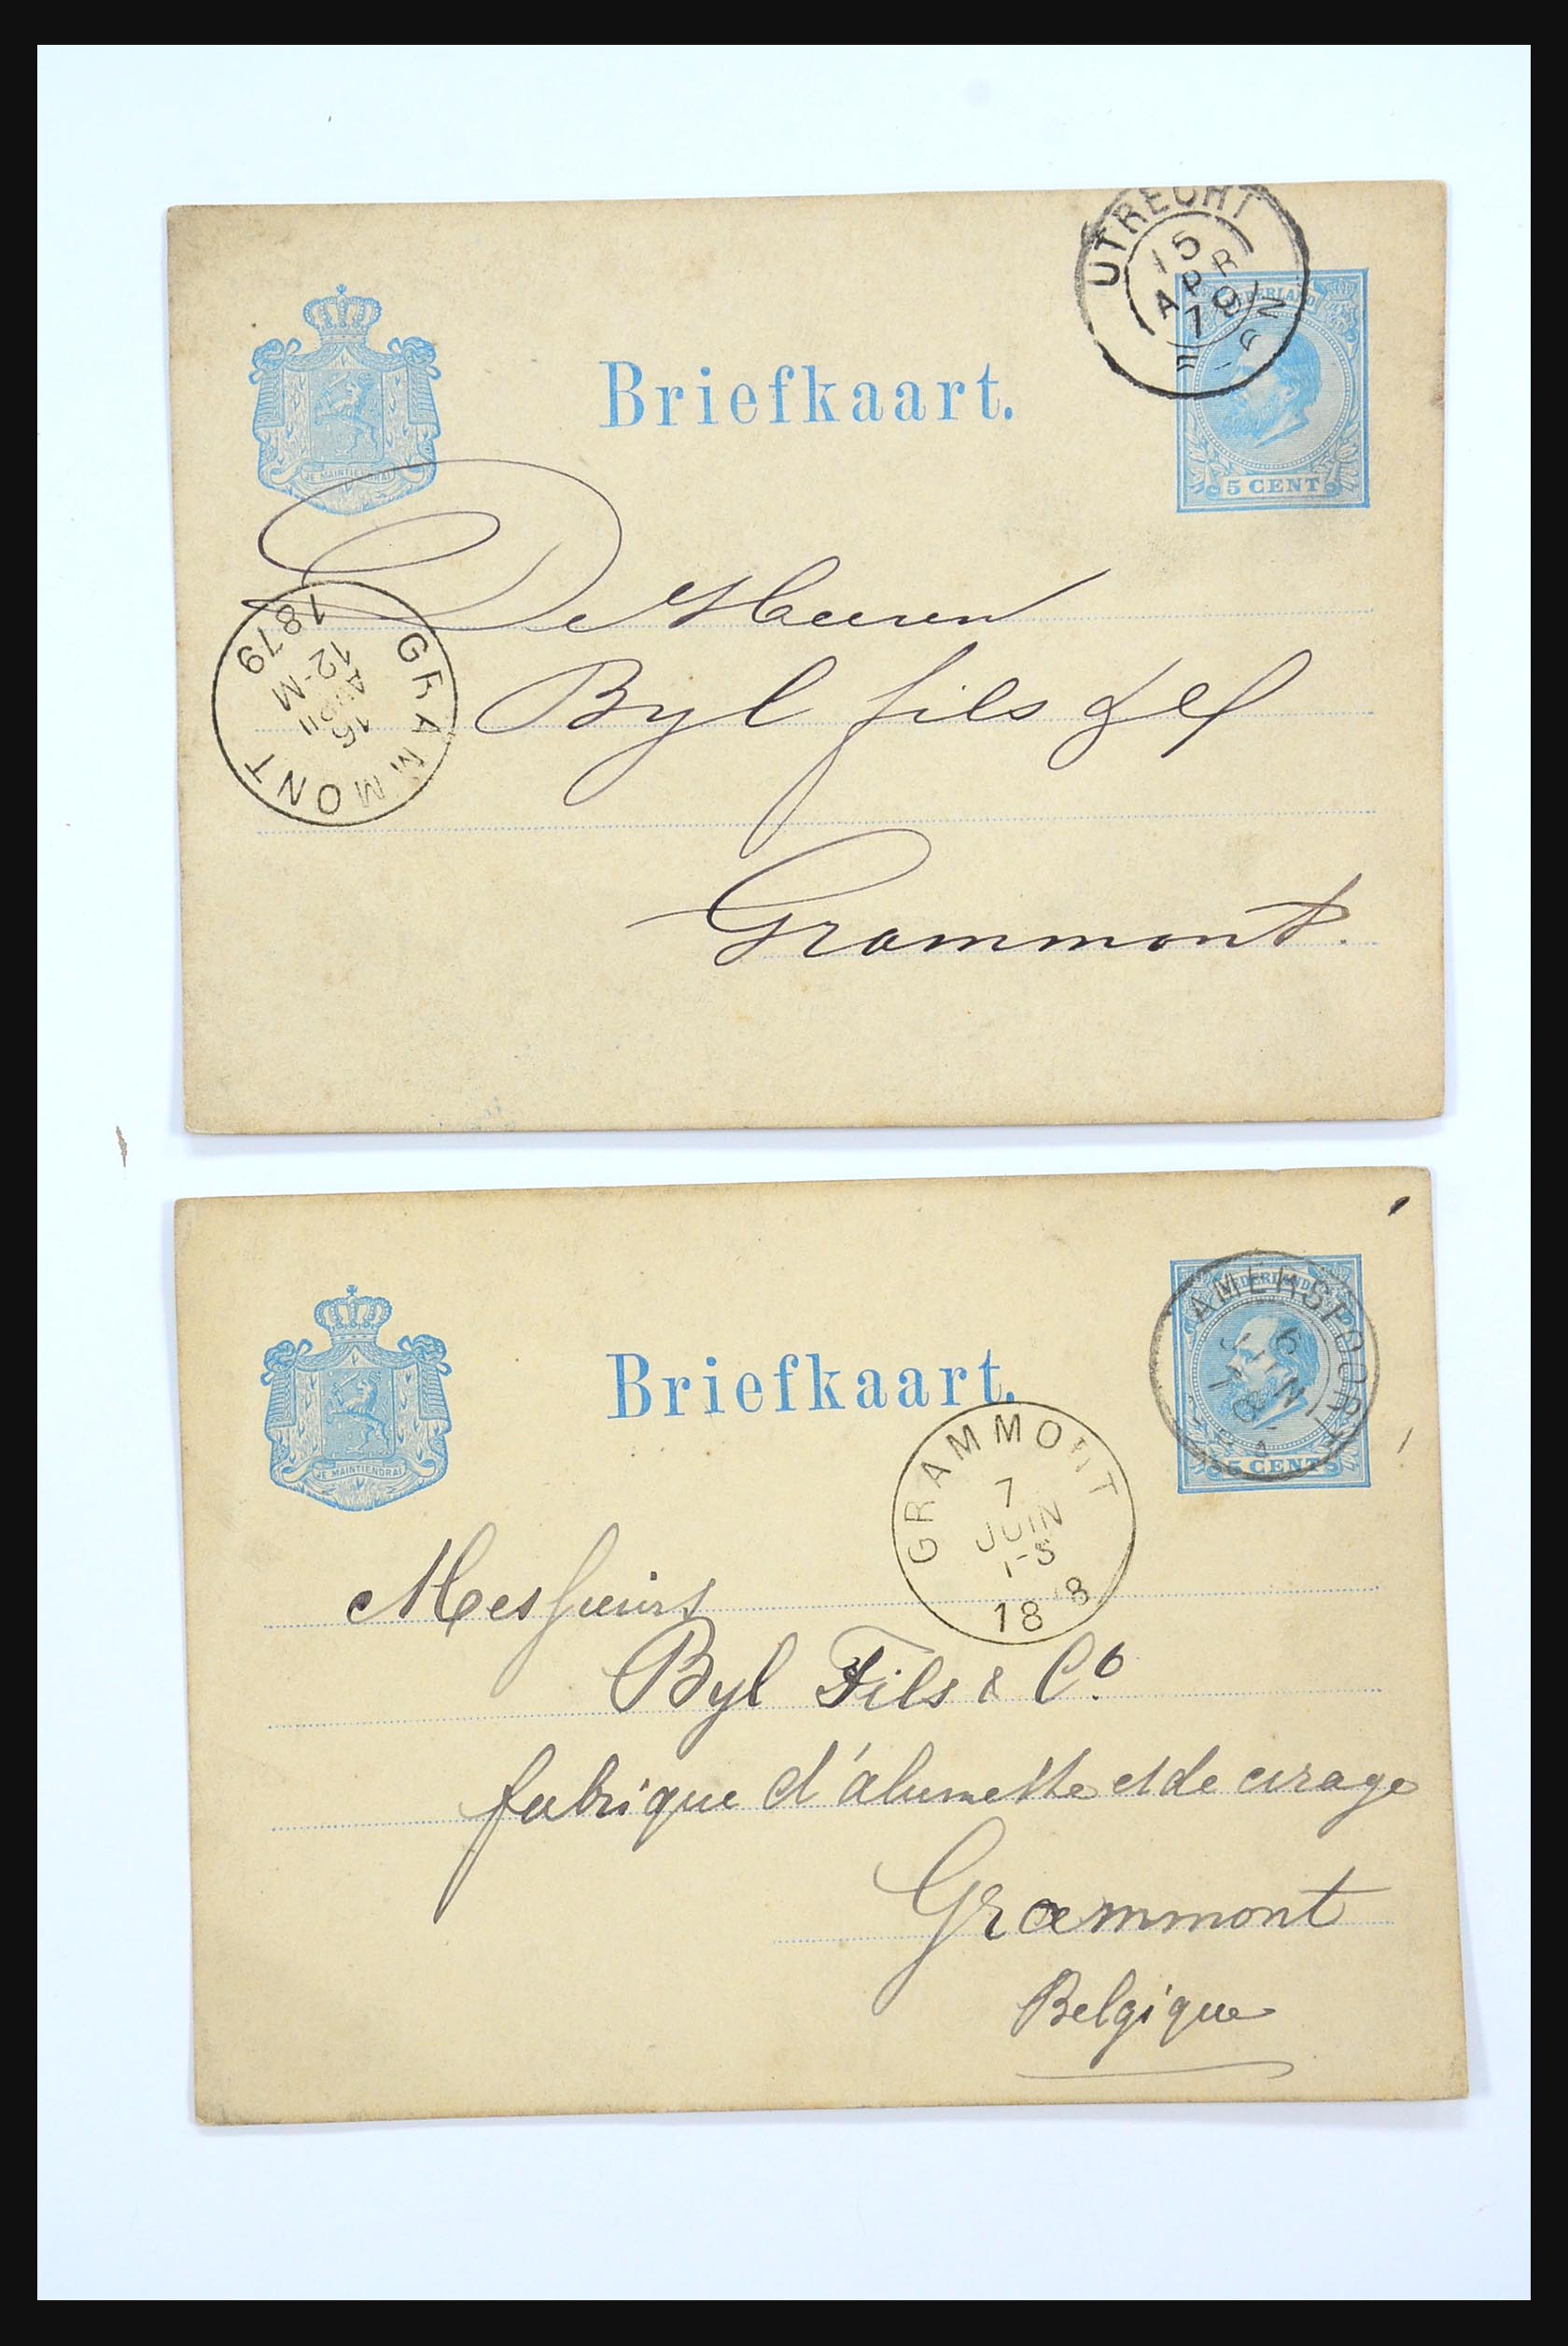 UTRECHT
15
APR
79
NEDERLAND
Briefkaart.
JE MAINTIENDRAI
5 CENT
De Heeren
GRAMMONT
16
12-M
1879
Byl fils & Co
Grammont.
NEDERLAND
AMERSFOORT
6
JUN
Briefkaart.
JE MAINTIENDRAI
5 CENT
GRAMMONT
7
JUIN
1-S
18 8
Messieurs
Byl Fils & Co.
fabrique d'alumette et de cirage
Grammont
Belgique